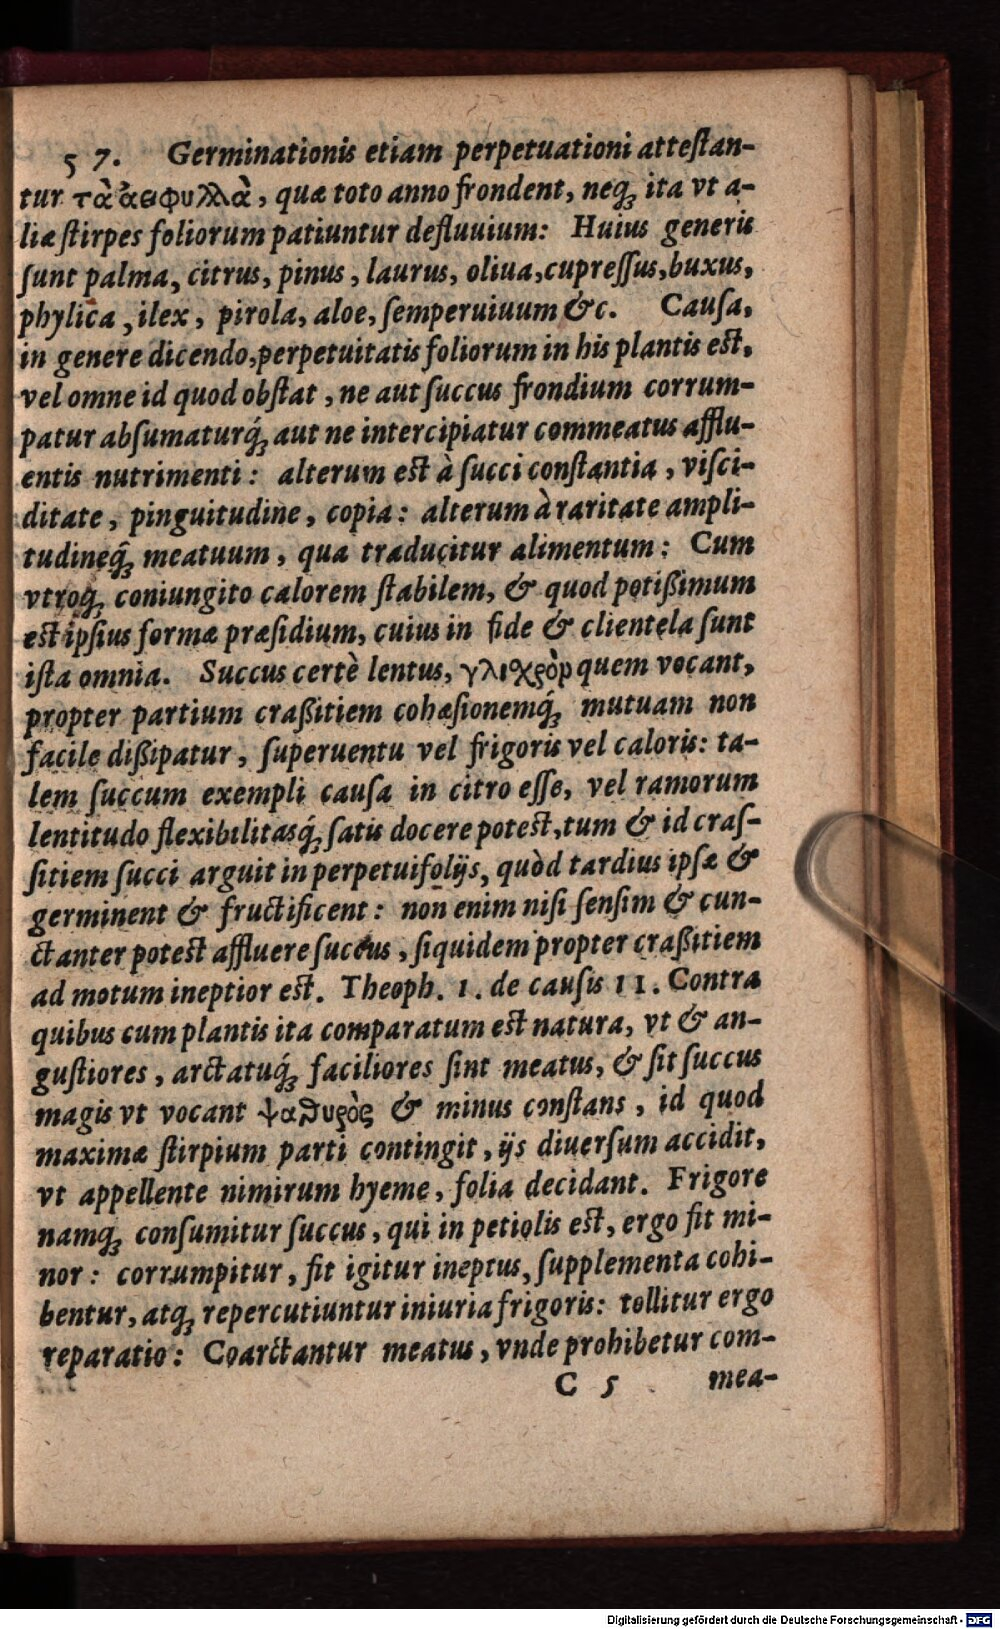 57. Germinationis etiam perpetuationi attestan-
tur τὰ ἀειφυλλὰ, quæ toto anno frondent, neq́ꝫ ita vt a-
liæ ſtirpes foliorum patiuntur defluuium: Huius generis
ſunt palma, citrus, pinus, laurus, oliua, cupreſſus, buxus,
phylica, ilex, pirola, aloe, ſemperuiuum &c. Cauſa,
in genere dicendo, perpetuitatis foliorum in his plantis eſt,
vel omne id quod obſtat, ne aut ſuccus frondium corrum-
patur abſumaturq́ꝫ aut ne intercipiatur commeatus afflu-
entis nutrimenti: alterum eſt à ſucci conſtantia, viſci-
ditate, pinguitudine, copia: alterum à raritate ampli-
tudineq́ꝫ meatuum, qua traducitur alimentum: Cum
vtroqꝫ coniungito calorem ſtabilem, & quod potißimum
eſt ipſius formæ præſidium, cuius in fide & clientela ſunt
iſta omnia. Succus certè lentus, γλιχρὸρ quem vocant,
propter partium craßitiem cohæſionemq́ꝫ mutuam non
facile dißipatur, ſuperuentu vel frigoris vel caloris: ta-
lem ſuccum exempli cauſa in citro eſſe, vel ramorum
lentitudo flexibilitasq́ꝫ ſatis docere poteſt, tum & id craſ-
ſitiem ſucci arguit in perpetuifolijs, quòd tardius ipſæ &
germinent & fructificent: non enim niſi ſenſim & cun-
ctanter poteſt affluere ſuccus, ſiquidem propter craßitiem
ad motum ineptior eſt. Theoph. 1. de cauſis 11. Contra
quibus cum plantis ita comparatum eſt natura, vt & an-
guſtiores, arctatuq́ꝫ faciliores ſint meatus, & ſit ſuccus
magis vt vocant ψαθυρὸς & minus conſtans, id quod
maximæ ſtirpium parti contingit, ijs diuerſum accidit,
vt appellente nimirum hyeme, folia decidant. Frigore
namqꝫ conſumitur ſuccus, qui in petiolis eſt, ergo fit mi-
nor: corrumpitur, fit igitur ineptus, ſupplementa cohi-
bentur, atqꝫ repercutiuntur iniuria frigoris: tollitur ergo
reparatio: Coarctantur meatus, vnde prohibetur com-
C 5 mea-
Digitalisierung gefördert durch die Deutsche Forschungsgemeinschaft - DFG